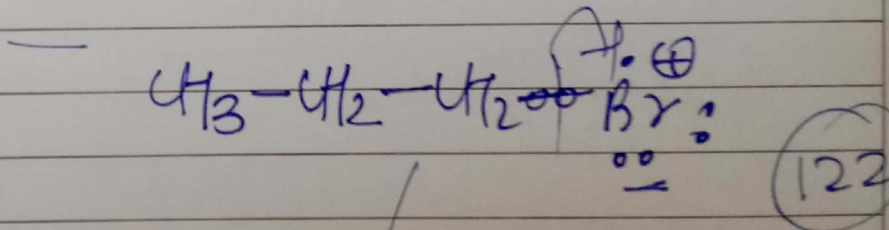 CH3-CH2-CH2 Br: ⊕
122